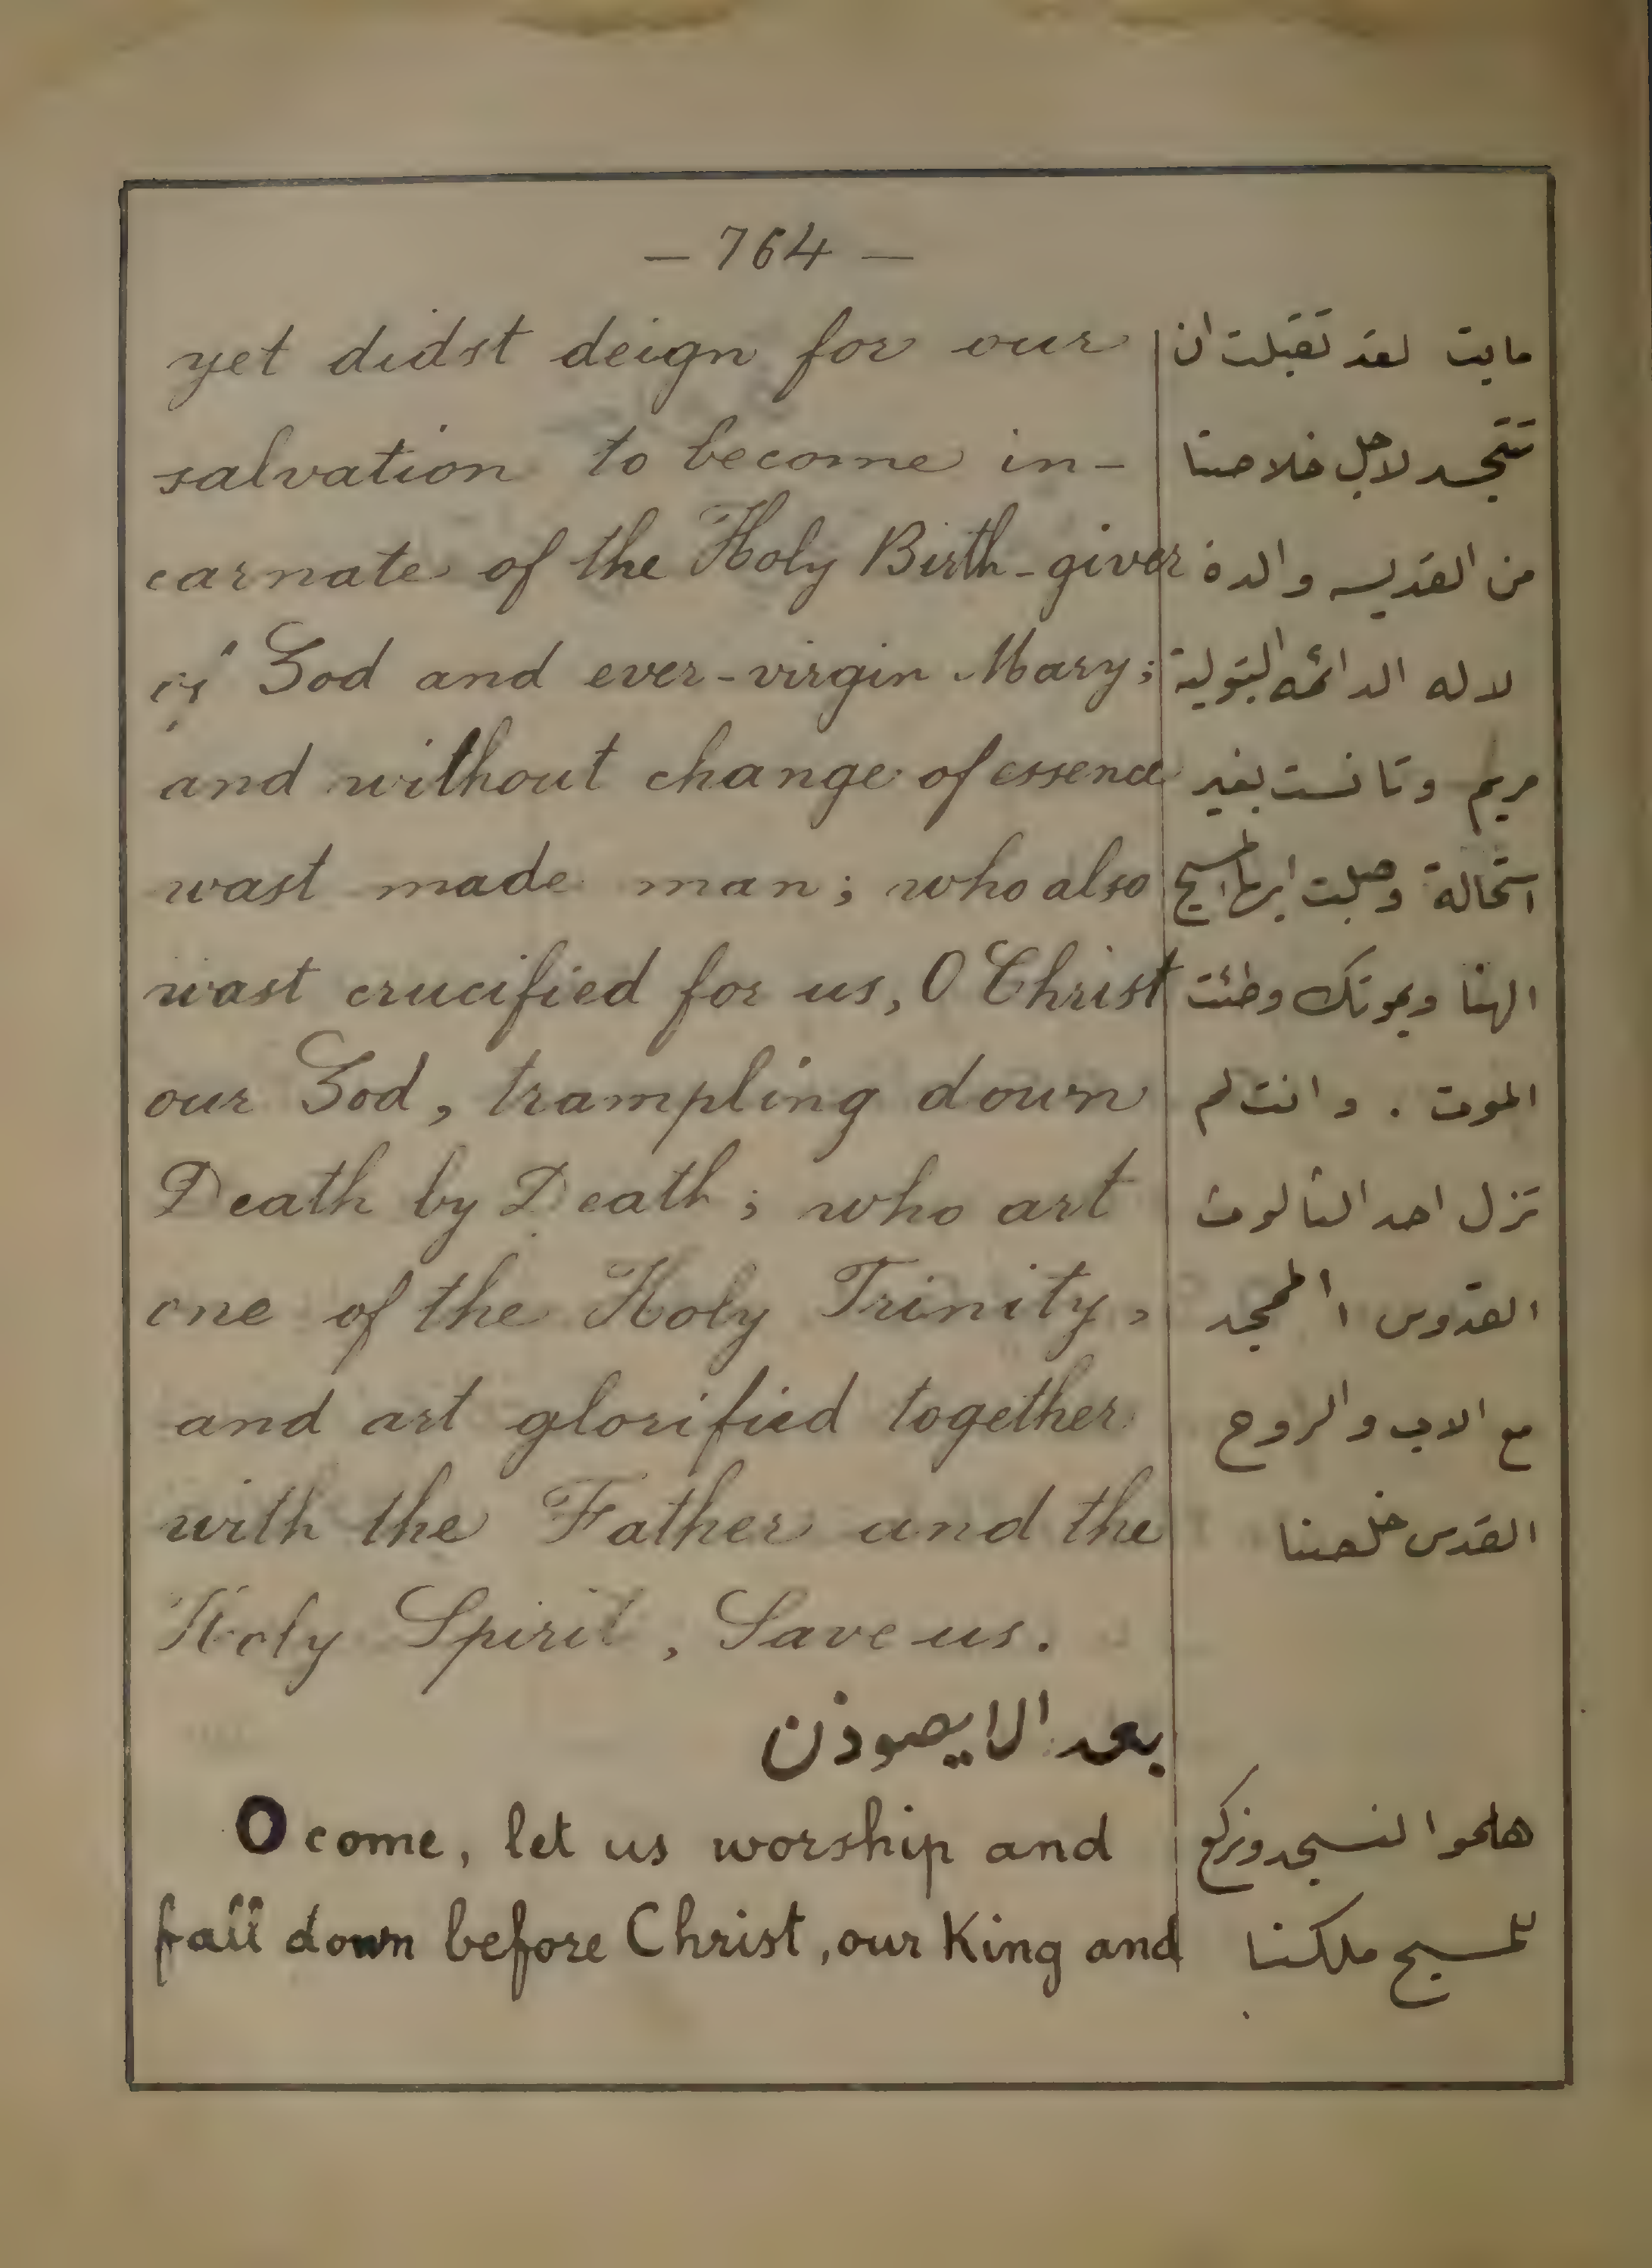 — 764 —
yet didst deign for our
salvation to become in-
carnate of the Holy Birth-giver
of God and ever-virgin Mary;
and without change of essence
wast made man; who also
wast crucified for us, O Christ
our God, trampling down
Death by Death; who art
one of the Holy Trinity,
and art glorified together
with the Father and the
Holy Spirit, Save us.
مايت لقد تقبلت ان
تتجسد لاجل خلاصنا
من القديسه والدة
لاله الدائمه البتولية
مريم وتانست بغير
استحالة وصلبت ايها المسيح
الهنا وبموتك وطئت
الموت . وانت لم
تزل احد الثالوث
القدوس الممجد
مع الاب والروح
القدس خلصنا
بعد الايصوذن
O come, let us worship and
fall down before Christ, our King and
هلموا لنسجد ونركع
للمسيح ملكنا